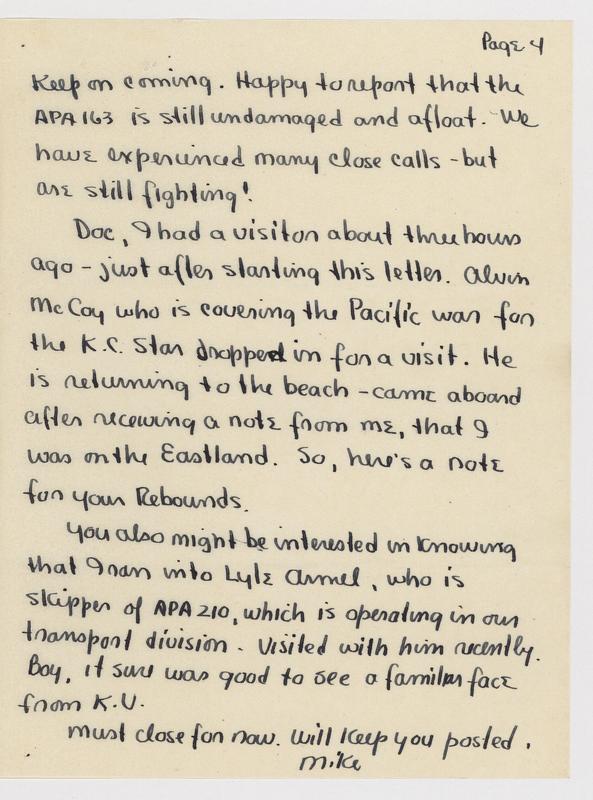 Page 4
Keep on coming. Happy to report that the
APA 163 is still undamaged and afloat. We
have experienced many close calls - but
are still fighting!
Doc, I had a visitor about three hours
ago - just after starting this letter. Alvin
McCoy who is covering the Pacific war for
the K.C. Star dropped in for a visit. He
is returning to the beach - came aboard
after receiving a note from me, that I
was on the Eastland. So, here's a note
for your Rebounds.
You also might be interested in knowing
that I ran into Lyle Armel, who is
skipper of APA 210, which is operating in our
transport division. Visited with him recently.
Boy, it sure was good to see a familiar face
from K.U.
Must close for now. Will keep you posted.
Mike